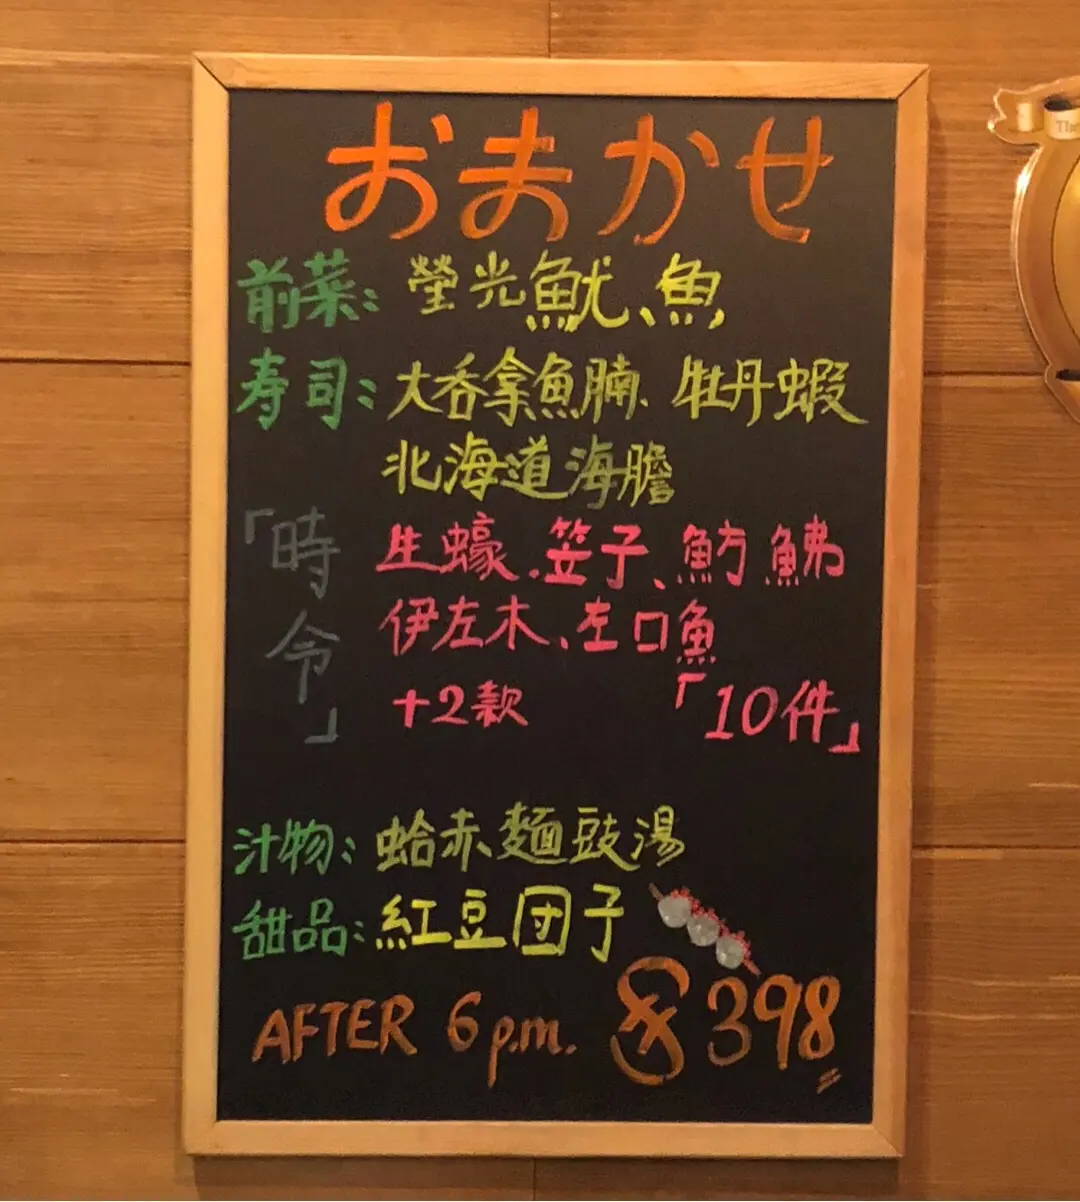 おまかせ
前菜: 螢光魷、魚
寿司: 大呑拿魚腩、牡丹蝦
北海道海膽
「時令」
生蠔、笠子、魴鮄
伊左木、左口魚
+2款 「10件」
汁物: 蛤赤麵豉湯
甜品: 紅豆団子
AFTER 6 p.m. $398